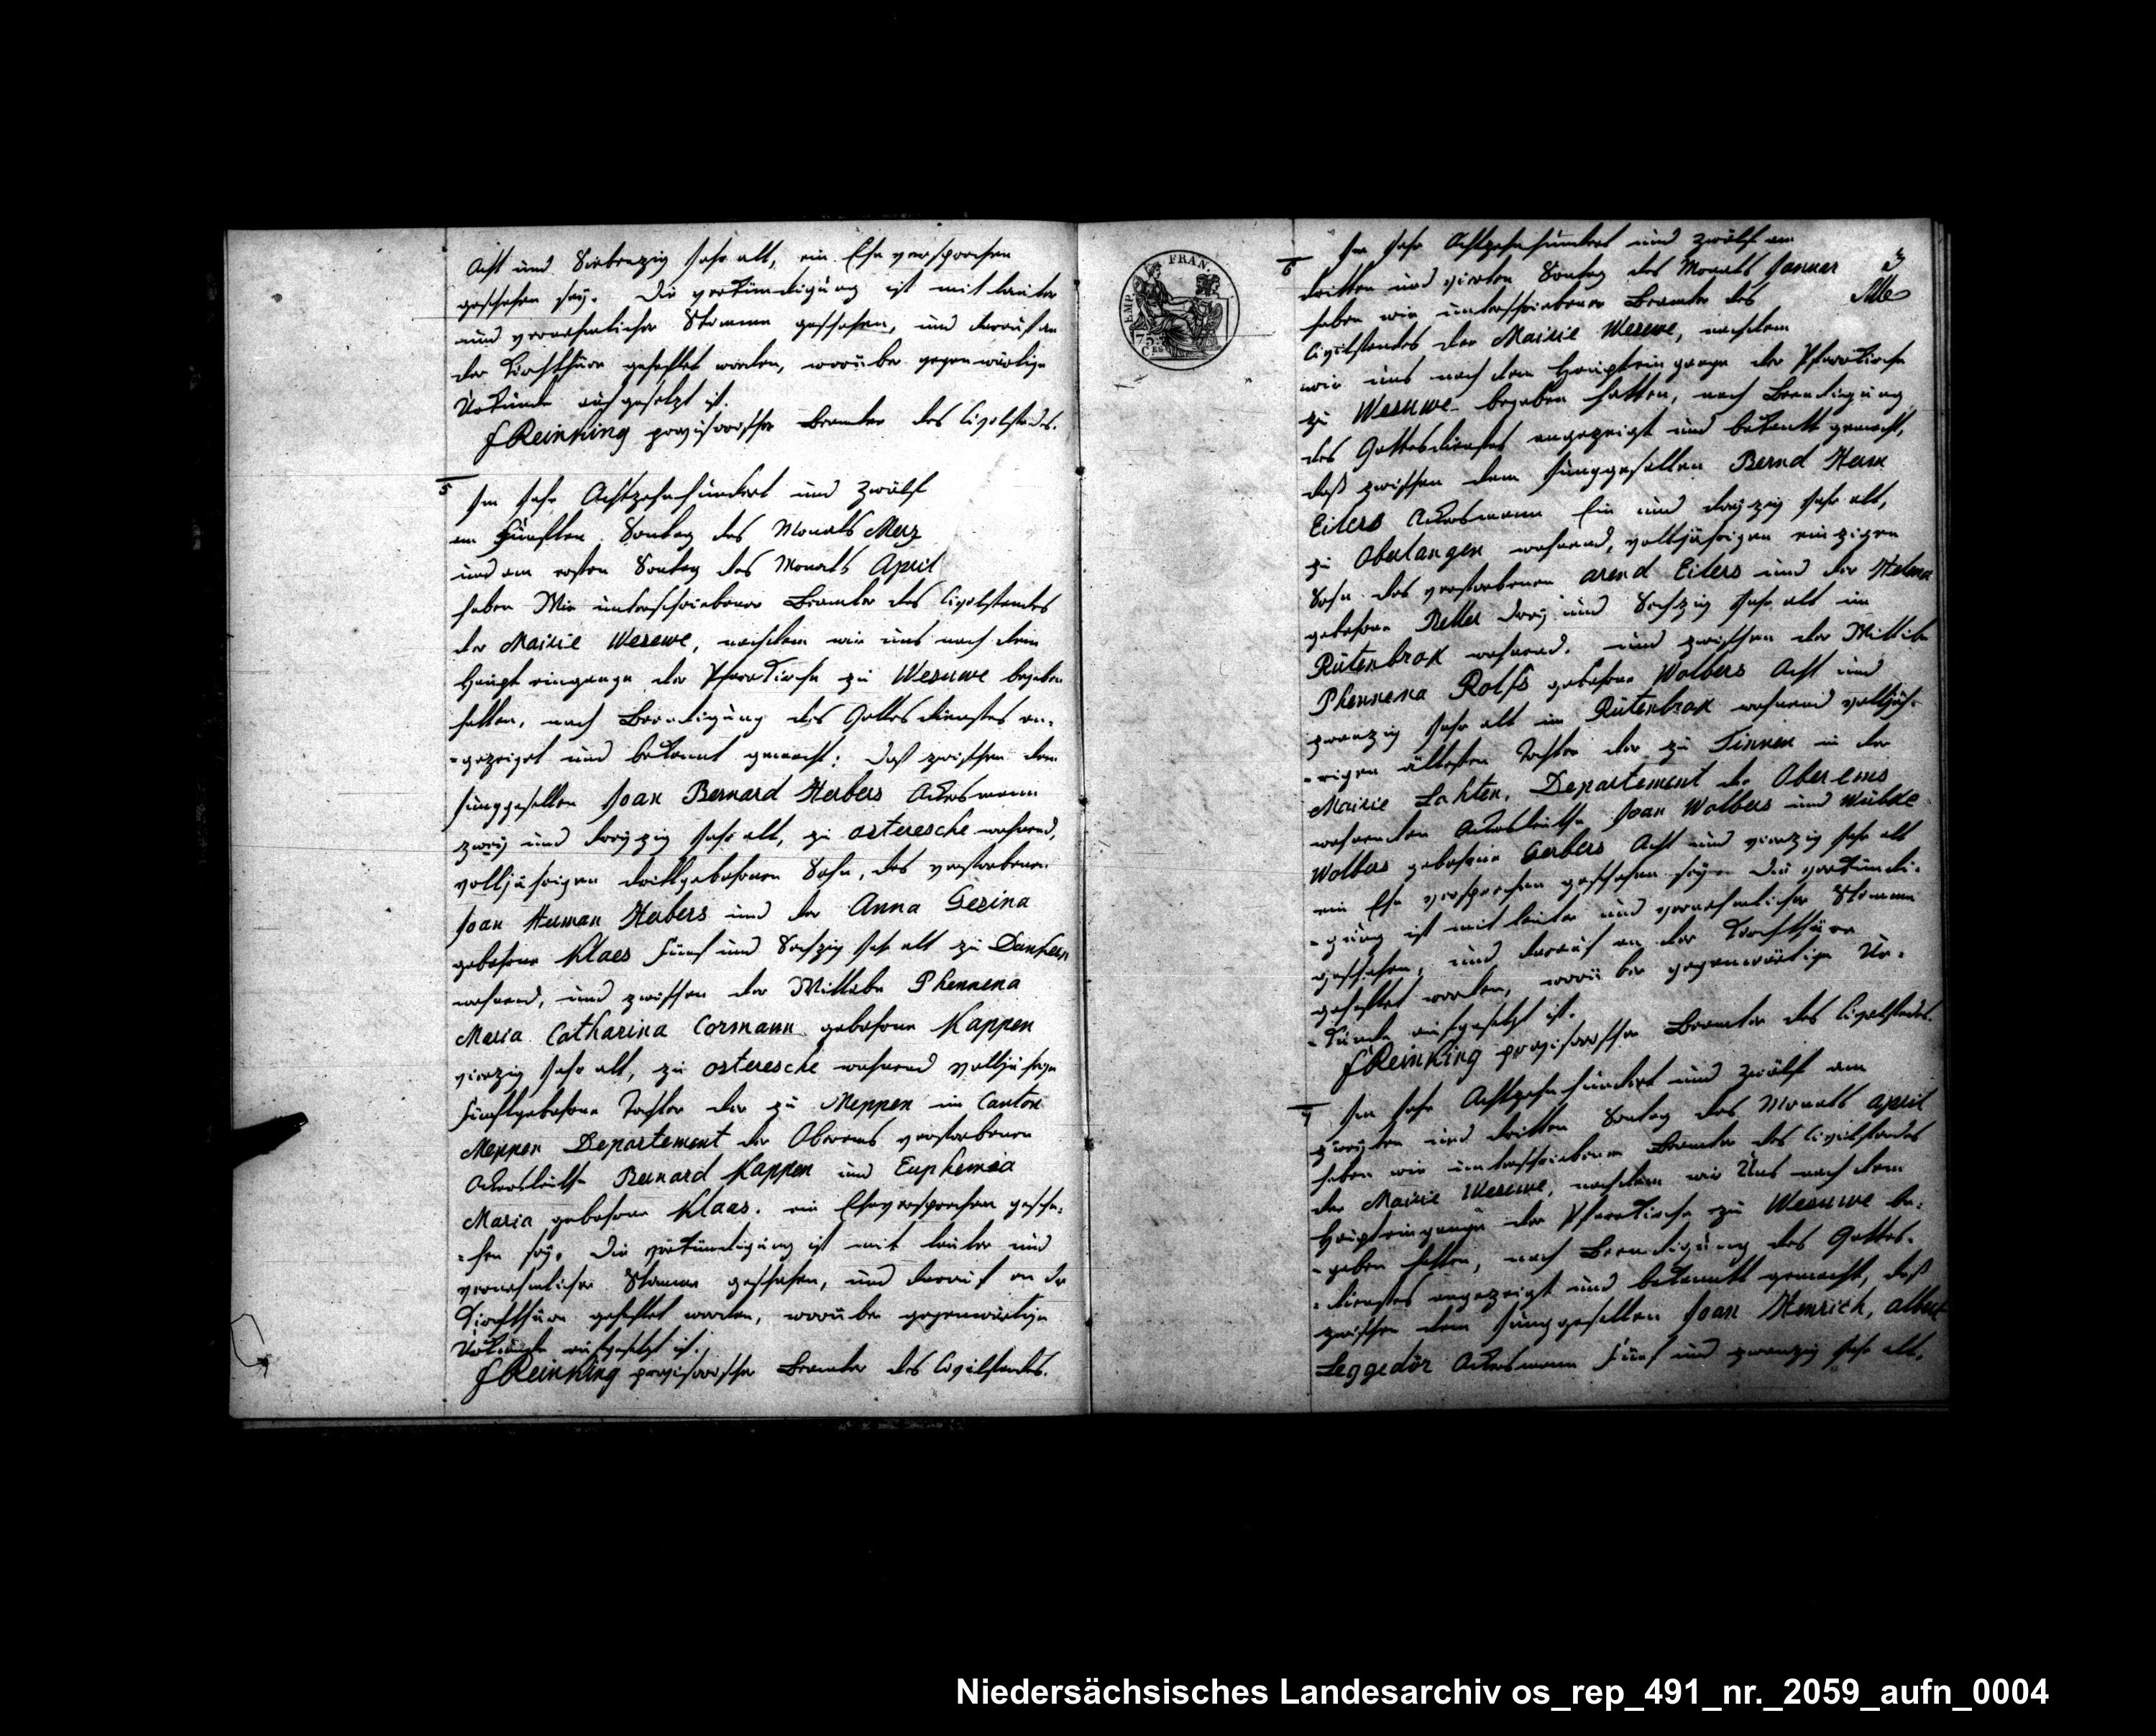 Acht und Siebenzig Jahr alt, ein Ehe versprechen
geschehen sey. Die verkündigung ist mit lauter
und vernehmlicher Stimme geschehen, und darauf an
der Kirchthüre geheftet worden, worüber gegenwärtige
Urkunde aufgesetzt ist.
J Reinking provisorischer Beamter des Civilstandes.
5
Im Jahr Achtzehnhundert und Zwölf
am Fünften Sontag des Monats Merz
und am ersten Sontag des Monats April
haben Wir unterschriebener Beamter des Civilstandes
der Mairie Wesuwe, nachdem wir uns nach dem
Haupt eingange der Pfarrkirche zu Wesuwe begeben
hatten, nach Beendigung des Gottesdienstes an-
-gezeiget und bekannt gemacht: daß zwischen dem
Junggesellen Joan Bernard Herbers Ackersmann
zwey und dreyzig Jahr alt, zu osteresche wohnend,
volljährigen drittgebohrnen Sohn, des verstorbenen
Joan Herman Herbers und der Anna Gesina
gebohrne Klaes Fünf und Sechzig Jahr alt zu Dankern
wohnend, und zwischen der Wittibe Phennena
Maria Catharina Cormann gebohrne Kappen
vierzig Jahr alt, zu osteresche wohnend volljährige
Fünftgebohrne Tochter der zu Meppen im Canton
Meppen Departement der Oberems verstorbenen
Ackersleuthe Bernard Kappen und Euphemia
Maria gebohrne Klaas. ein Eheversprechen gesche-
-hen sey. Die verkündigung ist mit lauter und
vernehmlicher Stimme geschehen, und darauf an der
Kirchthüre geheftet worden, worüber gegenwärtige
Urkunde aufgesetzt ist.
J Reinking provisorischer Beamter des Civilstandes.
EMP. FRAN.
75 CES
3
6
Im Jahr Achtzehnhundert und Zwölf am
dritten und vierten Sontag des Monats Januar
haben wir unterschriebener Beamter des
Civilstandes der Mairie Wesuwe, nachdem
wir uns nach dem Haupteingange der Pfarrkirche
zu Wesuwe begeben hatten, nach Beendigung
des Gottesdienstes angezeigt und bekannt gemacht,
daß zwischen dem Junggesellen Bernd Herm
Eilers Ackersmann Ein und dreyzig Jahr alt,
zu Oberlangen wohnend, volljährigen einzigen
Sohn des verstorbenen arend Eilers und der Helena
gebohrne drey und Sechzig Jahr alt im
Rütenbrok wohnend. und zwischen der Wittibe
Phennena Rolfs gebohrne Wolbers Acht und
zwanzig Jahr alt im Rütenbrok wohnend volljäh-
-rigen ältesten Tochter der zu Tinnen in der
Mairie Lahten, Departement der Oberems
wohnenden Ackersleuthe Joan Wolbers und Wübke
Wolbers gebohrne Gerbers Acht und vierzig Jahr alt
ein Ehe versprechen geschehen sey. Die verkündi-
-gung ist mit lauter und vernehmlicher Stimme
geschehen, und darauf an der Kirchthüre
geheftet worden, worüber gegenwärtige Ur-
-kunde aufgesetzt ist.
J Reinking provisorischer Beamter des Civilstandes.
7
Im Jahr Achtzehnhundert und Zwölf am
zweyten und dritten Sontag des Monats April
haben wir unterschriebener Beamter des Civilstandes
der Mairie Wesuwe, nachdem wir Uns nach dem
Haupteingange der Pfarrkirche zu Wesuwe be-
-geben hatten, nach Beendigung des Gottes-
-dienstes angezeigt und bekannt gemacht, daß
zwischen dem Junggesellen Joan Henrich, albert
Leggedör Ackersmann Fünf und zwanzig Jahr alt.
Niedersächsisches Landesarchiv os_rep_491_nr._2059_aufn_0004